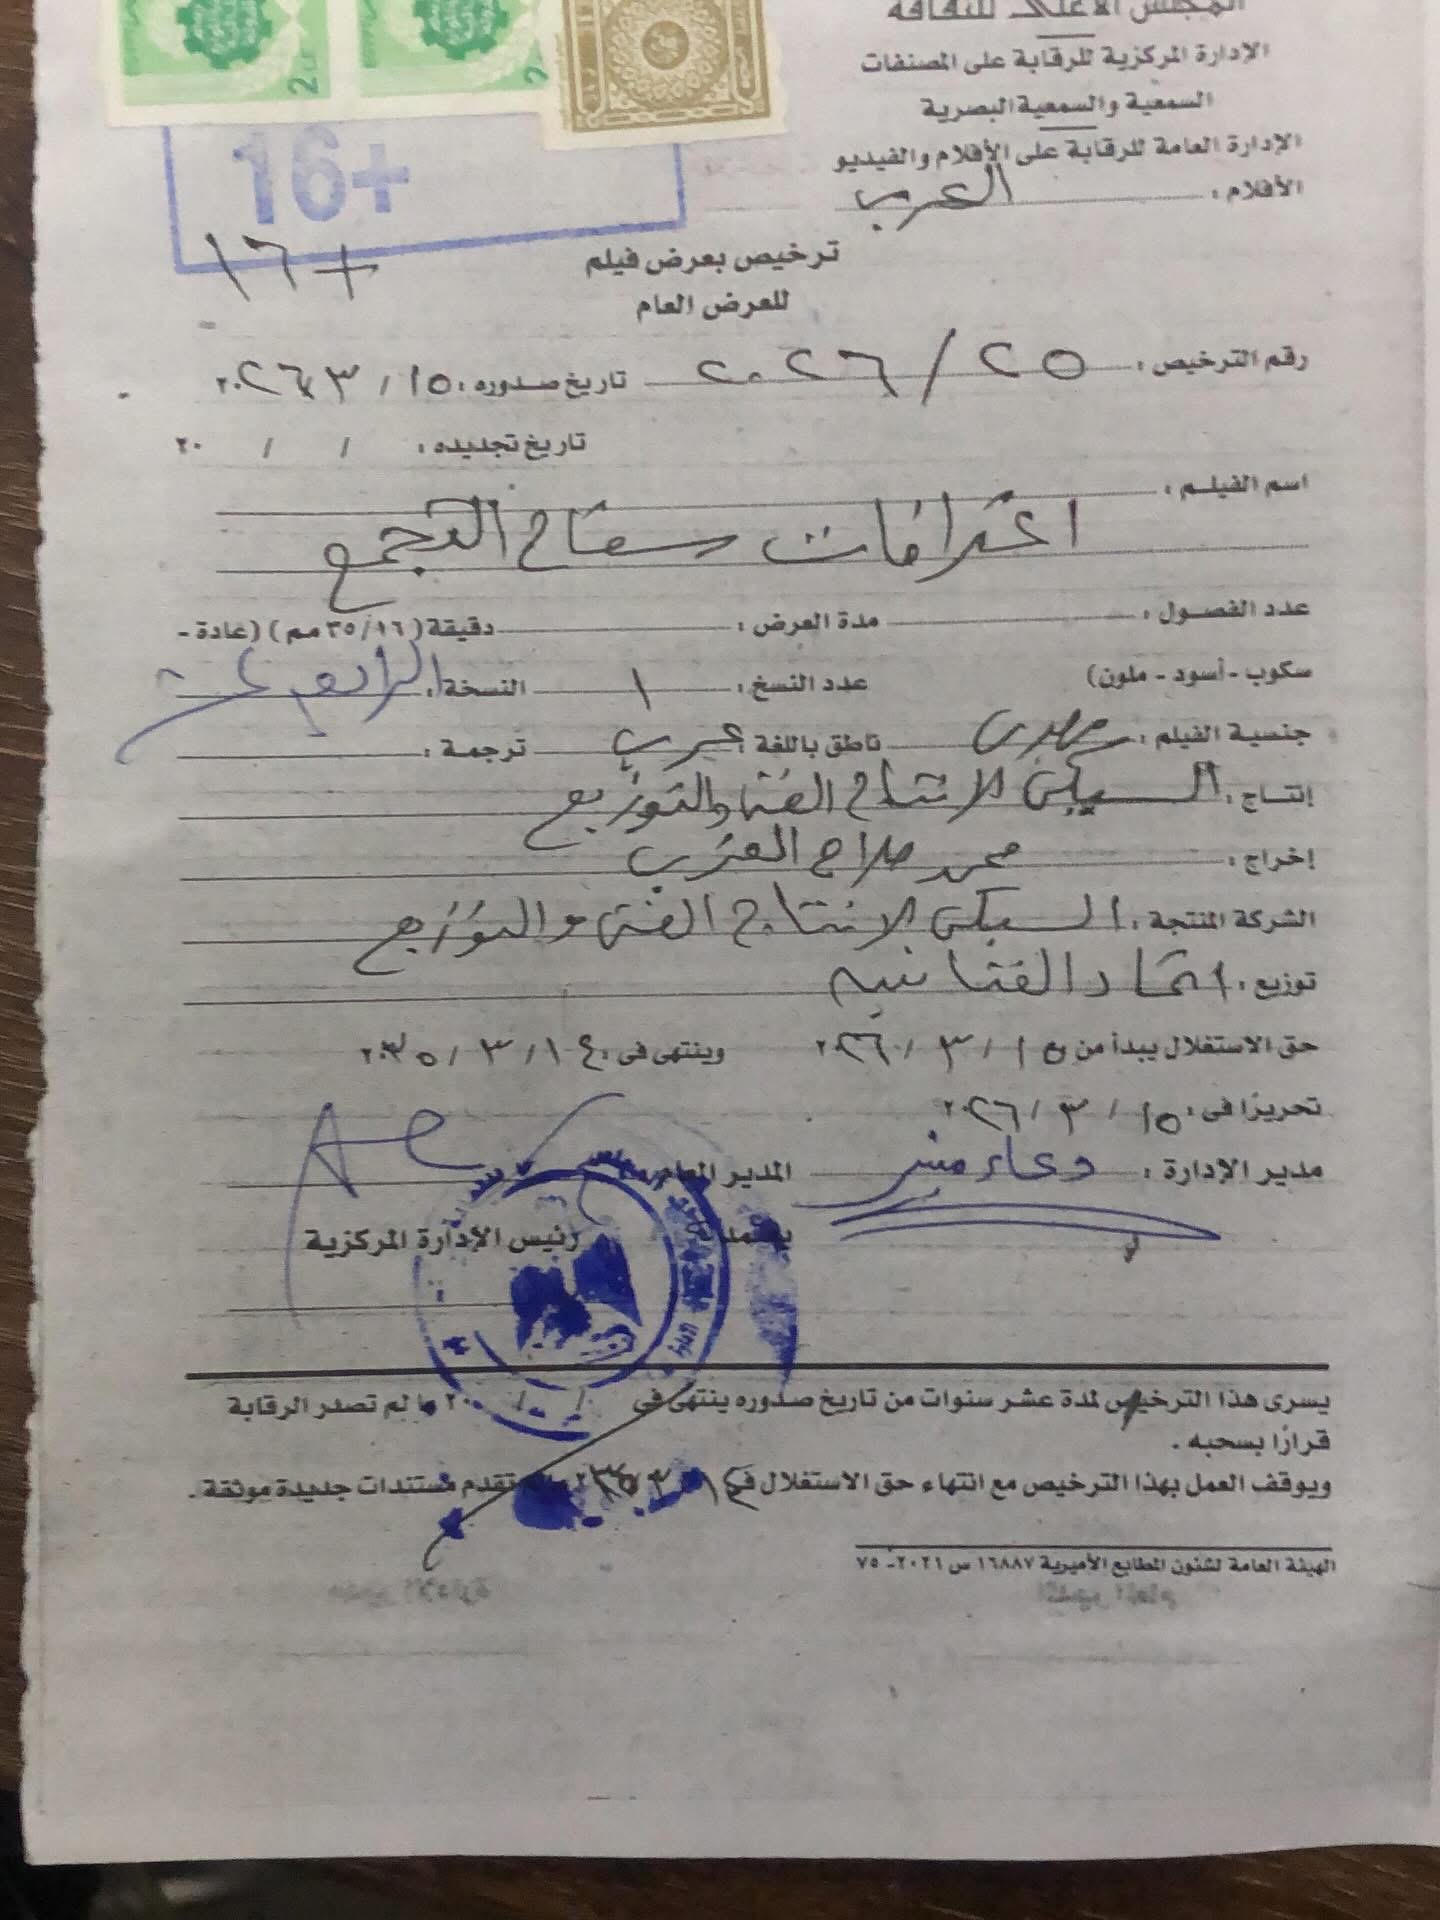 المجلس الأعلى للثقافة
الإدارة المركزية للرقابة على المصنفات
السمعية والسمعية البصرية
الإدارة العامة للرقابة على الأفلام والفيديو
الأفلام : العرب
2
2
16+
+١٦
ترخيص بعرض فيلم
للعرض العام
رقم الترخيص : ٢٥ / ٢٠٢٦ تاريخ صدوره : ١٥ / ٣ / ٢٠٢٦
تاريخ تجديده : / / ٢٠
اسم الفيلم :
اعترافات سفاح التجمع
عدد الفصول : مدة العرض : دقيقة (٣٥/١٦ مم) (عادة -
سكوب - أسود - ملون) عدد النسخ : ١ النسخة :
جنسية الفيلم : مصرى ناطق باللغة : عربى ترجمة :
إنتاج : السبكى للانتاج الفنى والتوزيع
إخراج : محمد صلاح العزب
الشركة المنتجة : السبكى للانتاج الفنى والتوزيع
توزيع : اتحاد الفنانين
حق الاستغلال يبدأ من ١٥ / ٣ / ٢٠٢٦ وينتهى فى ١٤ / ٣ / ٢٠٣٥
تحريرًا فى : ١٥ / ٣ / ٢٠٢٦
مدير الإدارة : دعاء منير المدير العام
يعتمد
رئيس الإدارة المركزية
يسرى هذا الترخيص لمدة عشر سنوات من تاريخ صدوره ينتهى فى / / ٢٠ مالم تصدر الرقابة
قرارًا بسحبه .
ويوقف العمل بهذا الترخيص مع انتهاء حق الاستغلال فى ١٤ ٣ تقدم مستندات جديدة موثقة .
الهيئة العامة لشئون المطابع الأميرية ١٦٨٨٧ س ٢٠٢١ - ٧٥